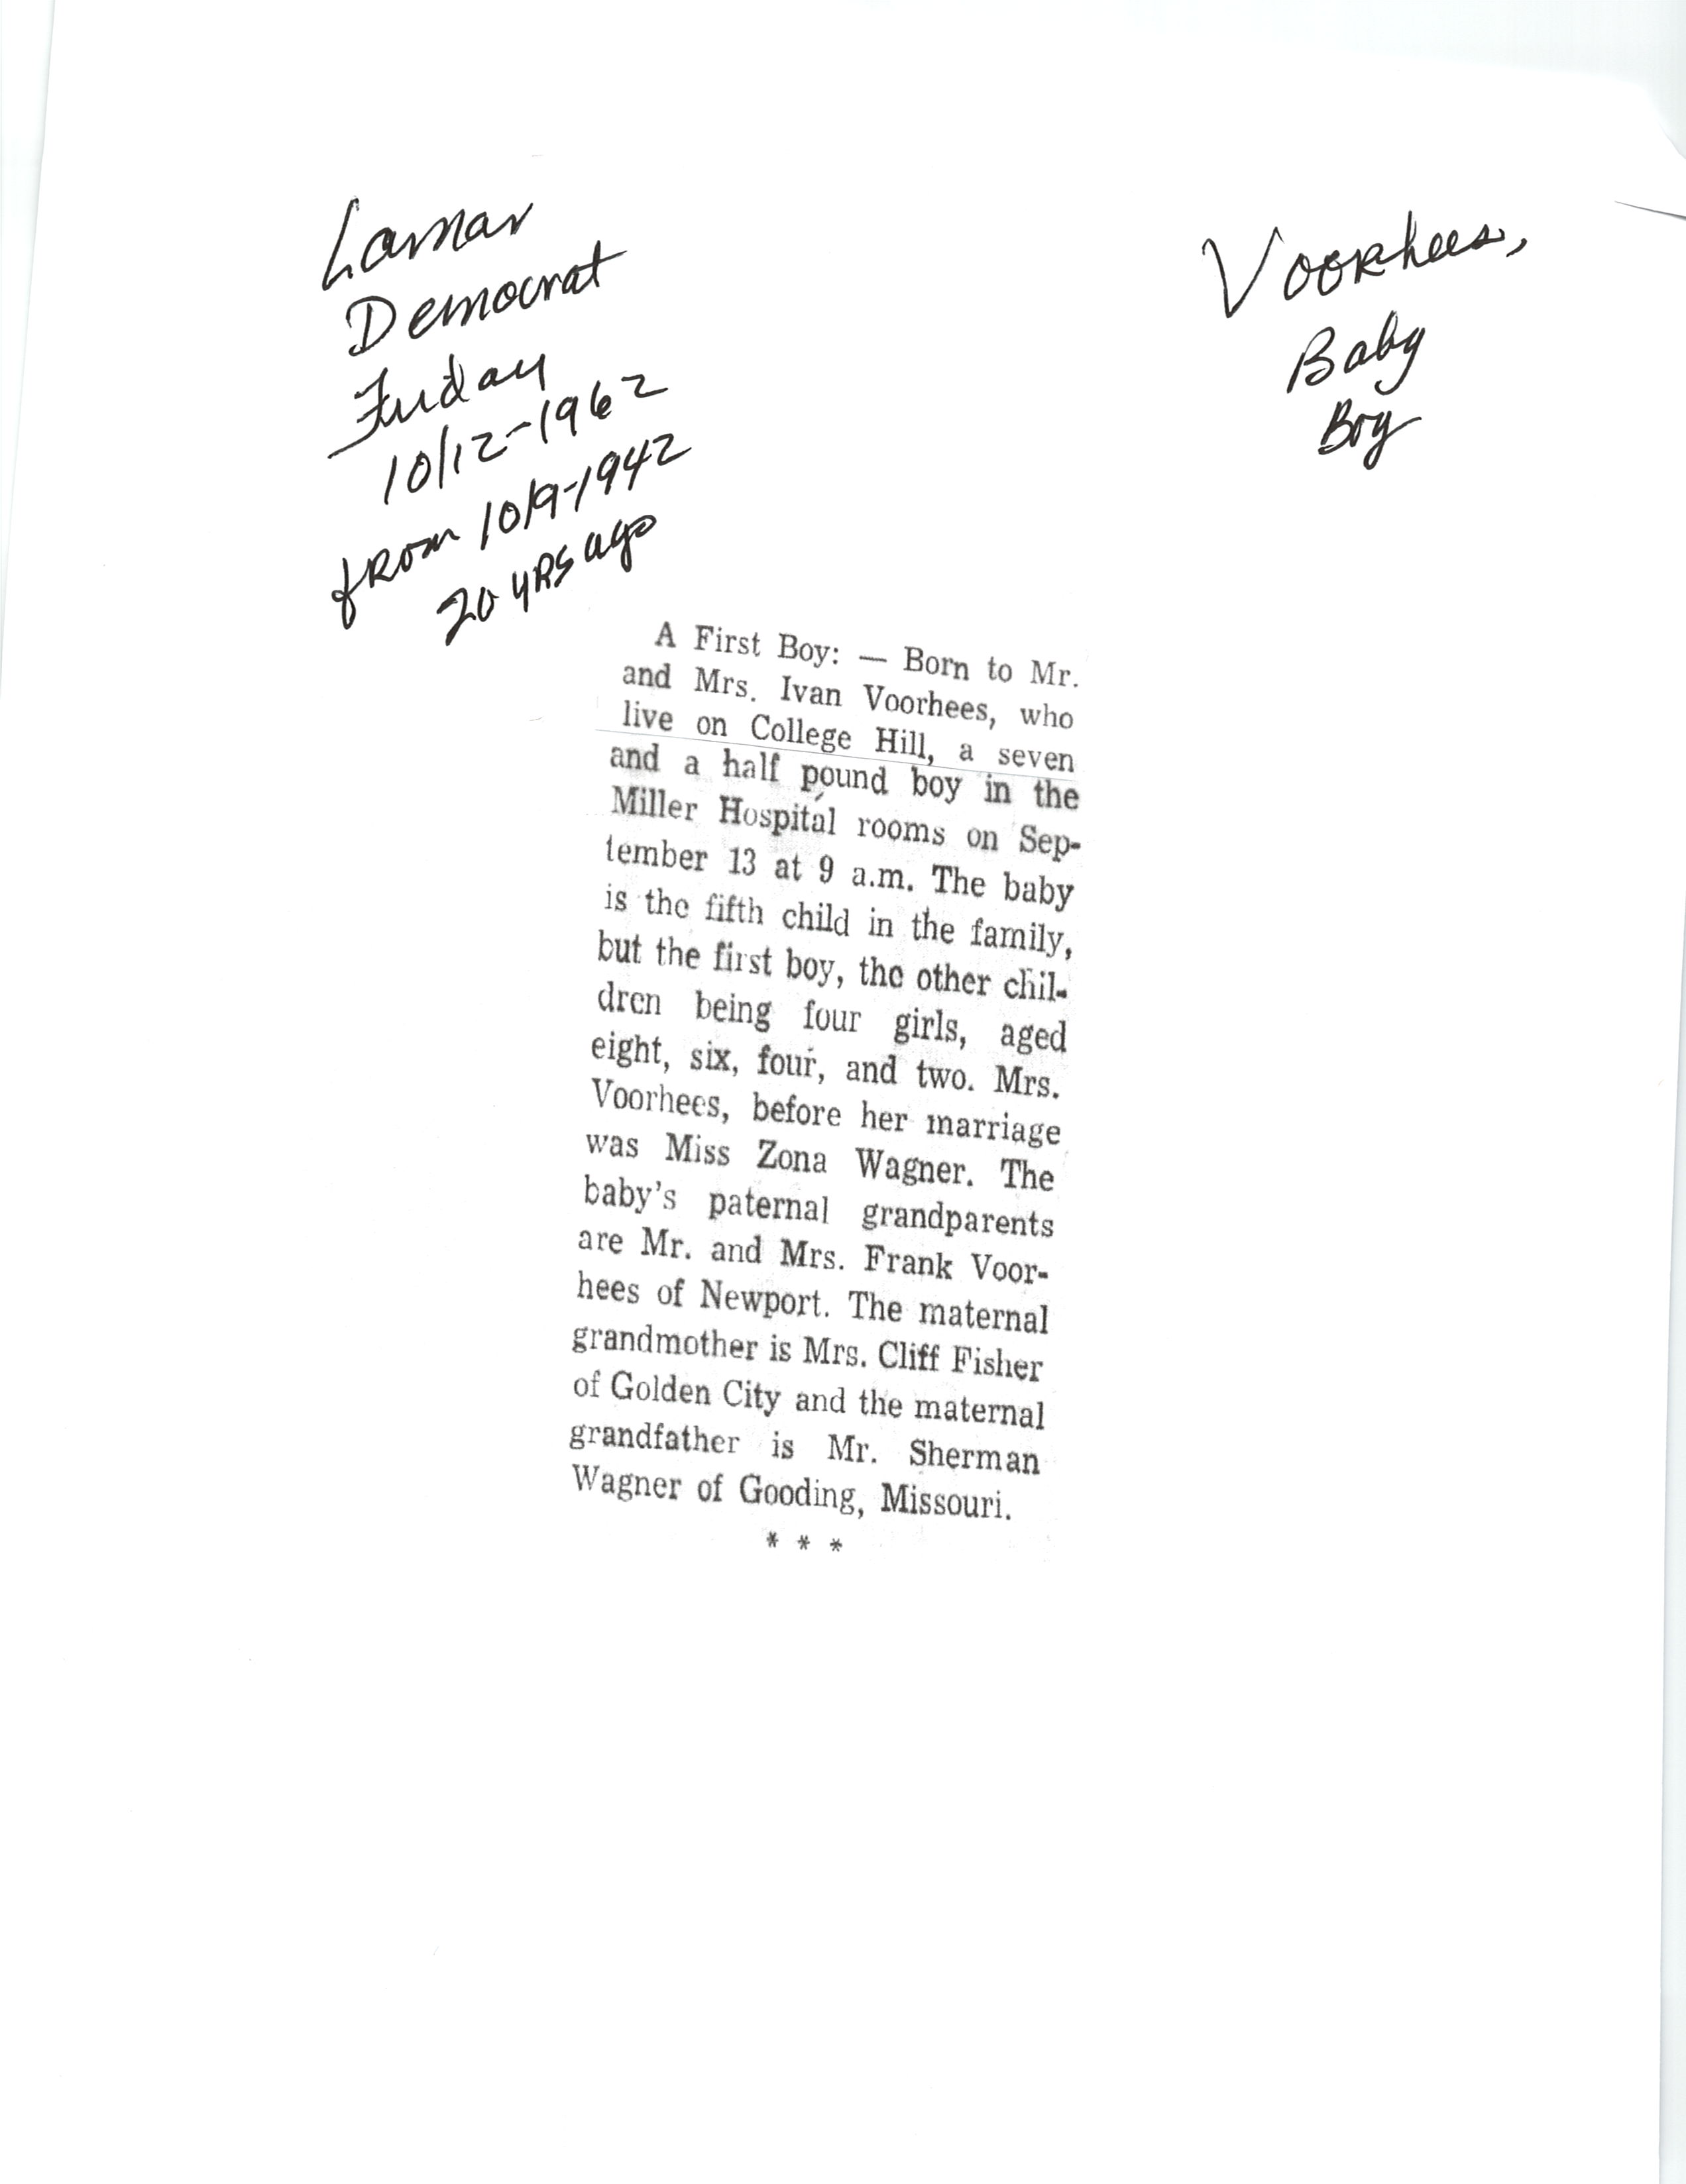 Lamar
Democrat
Friday
10/12-1962
from 10/9-1942
20 yrs ago
Voorhees,
Baby
Boy
A First Boy: — Born to Mr.
and Mrs. Ivan Voorhees, who
live on College Hill, a seven
and a half pound boy in the
Miller Hospital rooms on Sep-
tember 13 at 9 a.m. The baby
is the fifth child in the family,
but the first boy, the other chil-
dren being four girls, aged
eight, six, four, and two. Mrs.
Voorhees, before her marriage
was Miss Zona Wagner. The
baby's paternal grandparents
are Mr. and Mrs. Frank Voor-
hees of Newport. The maternal
grandmother is Mrs. Cliff Fisher
of Golden City and the maternal
grandfather is Mr. Sherman
Wagner of Gooding, Missouri.
* * *